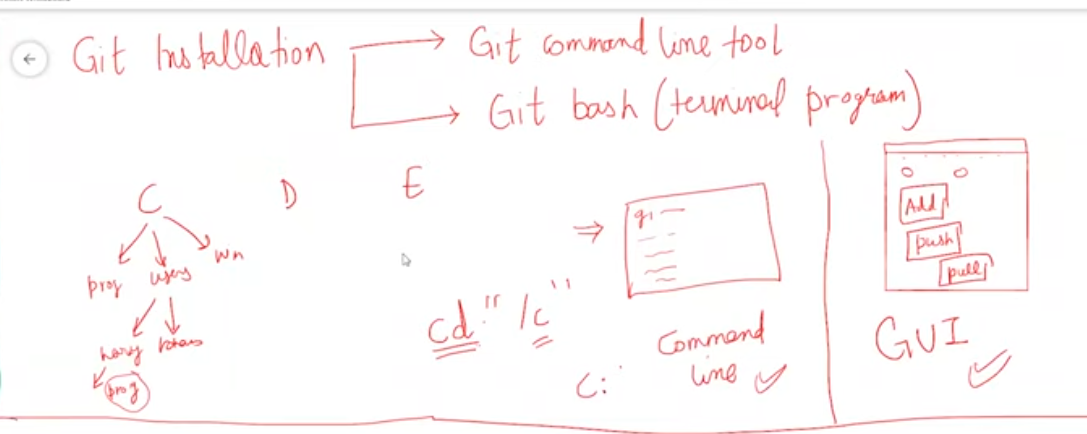 Git Installation
Git command line tool
Git bash (terminal program)
C
D
E
prog
users
wn
harry
prog
cd "/c"
C:
gi
Command
line
Add
push
pull
GUI